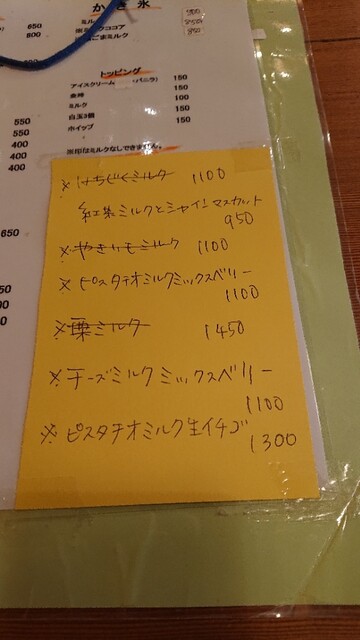 かき氷
650
800
ミルク
ごまミルク
トッピング
アイスクリーム (バニラ) 150
150
ミルク 100
白玉3個 150
ホイップ 150
※印はミルクなしできません。
550
550
400
400
400
650
※はちじくミルク 1100
紅茶ミルクとシャインマスカット
950
※やきいもミルク 1100
※ピスタチオミルクミックスベリー
1100
※栗ミルク 1450
※チーズミルクミックスベリー
1100
※ピスタチオミルク生イチゴ
1300